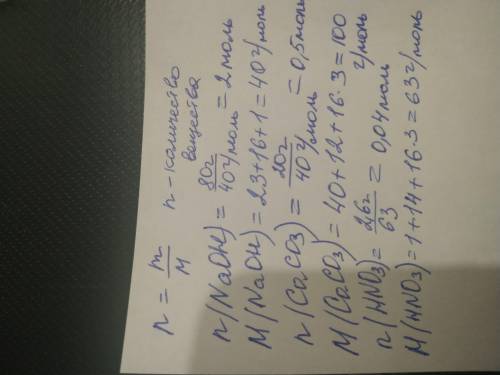 n = m/M n - количество вещества
n(NaOH) = 80г/40г/моль = 2 моль
M(NaOH) = 23+16+1 = 40 г/моль
n(CaCO3) = 20г/40г/моль = 0,5 моль
M(CaCO3) = 40+12+16·3 = 100 г/моль
n(HNO3) = 2,6г/63 = 0,04 моль
M(HNO3) = 1+14+16·3 = 63 г/моль